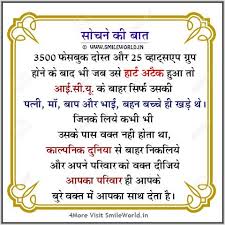 सोचने की बात
WWW.SMILEWORLD.IN
3500 फेसबुक दोस्त और 25 व्हाट्सएप ग्रुप
होने के बाद भी जब उसे हार्ट अटैक हुआ तो
आई.सी.यू. के बाहर सिर्फ उसकी
पत्नी, माँ, बाप और भाई, बहन बच्चे ही खड़े थे।
जिनके लिये कभी भी
उसके पास वक्त नहीं होता था,
काल्पनिक दुनिया से बाहर निकलिये
और अपने परिवार को वक्त दीजिये
आपका परिवार ही आपके
बुरे वक्त में आपका साथ देता है।
4More Visit SmileWorld.in